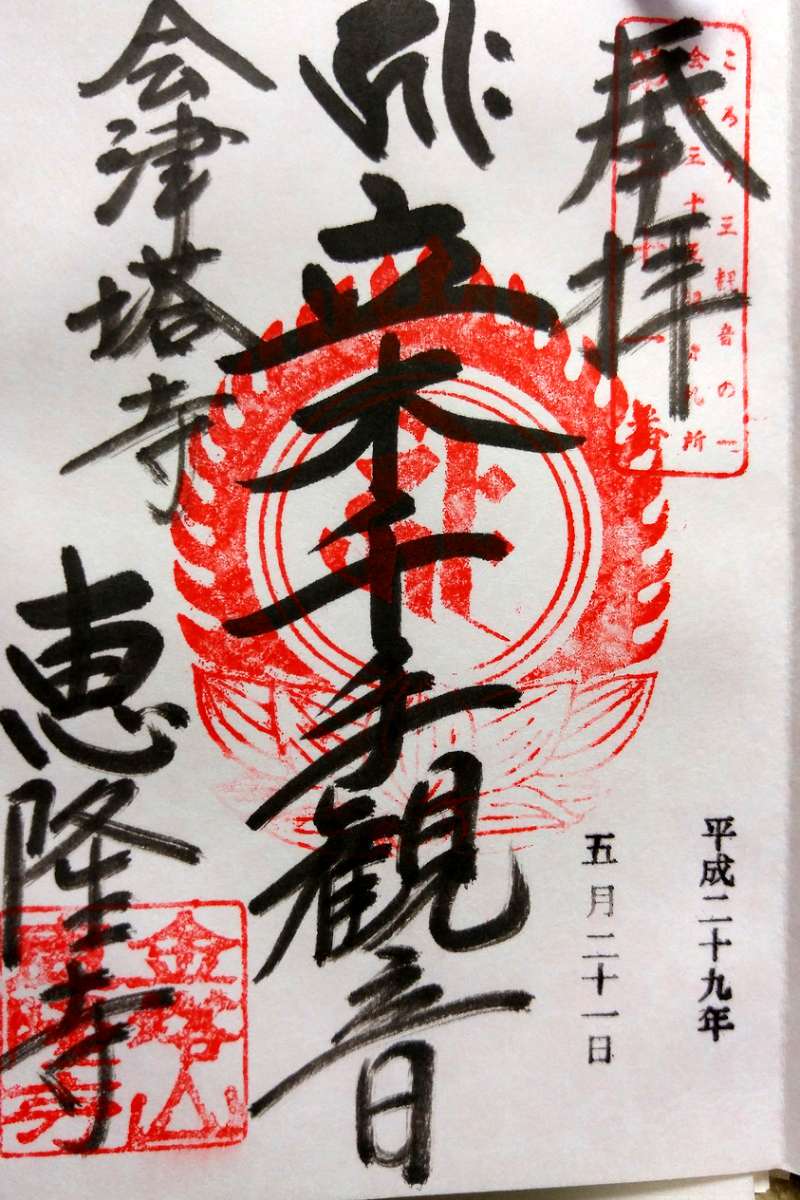 奉拝
ころり三観音の一
会津三十三観音札所
第三十一番
平成二十九年
五月二十一日
立木千手観音
会津塔寺
恵隆寺
金塔山
恵隆寺